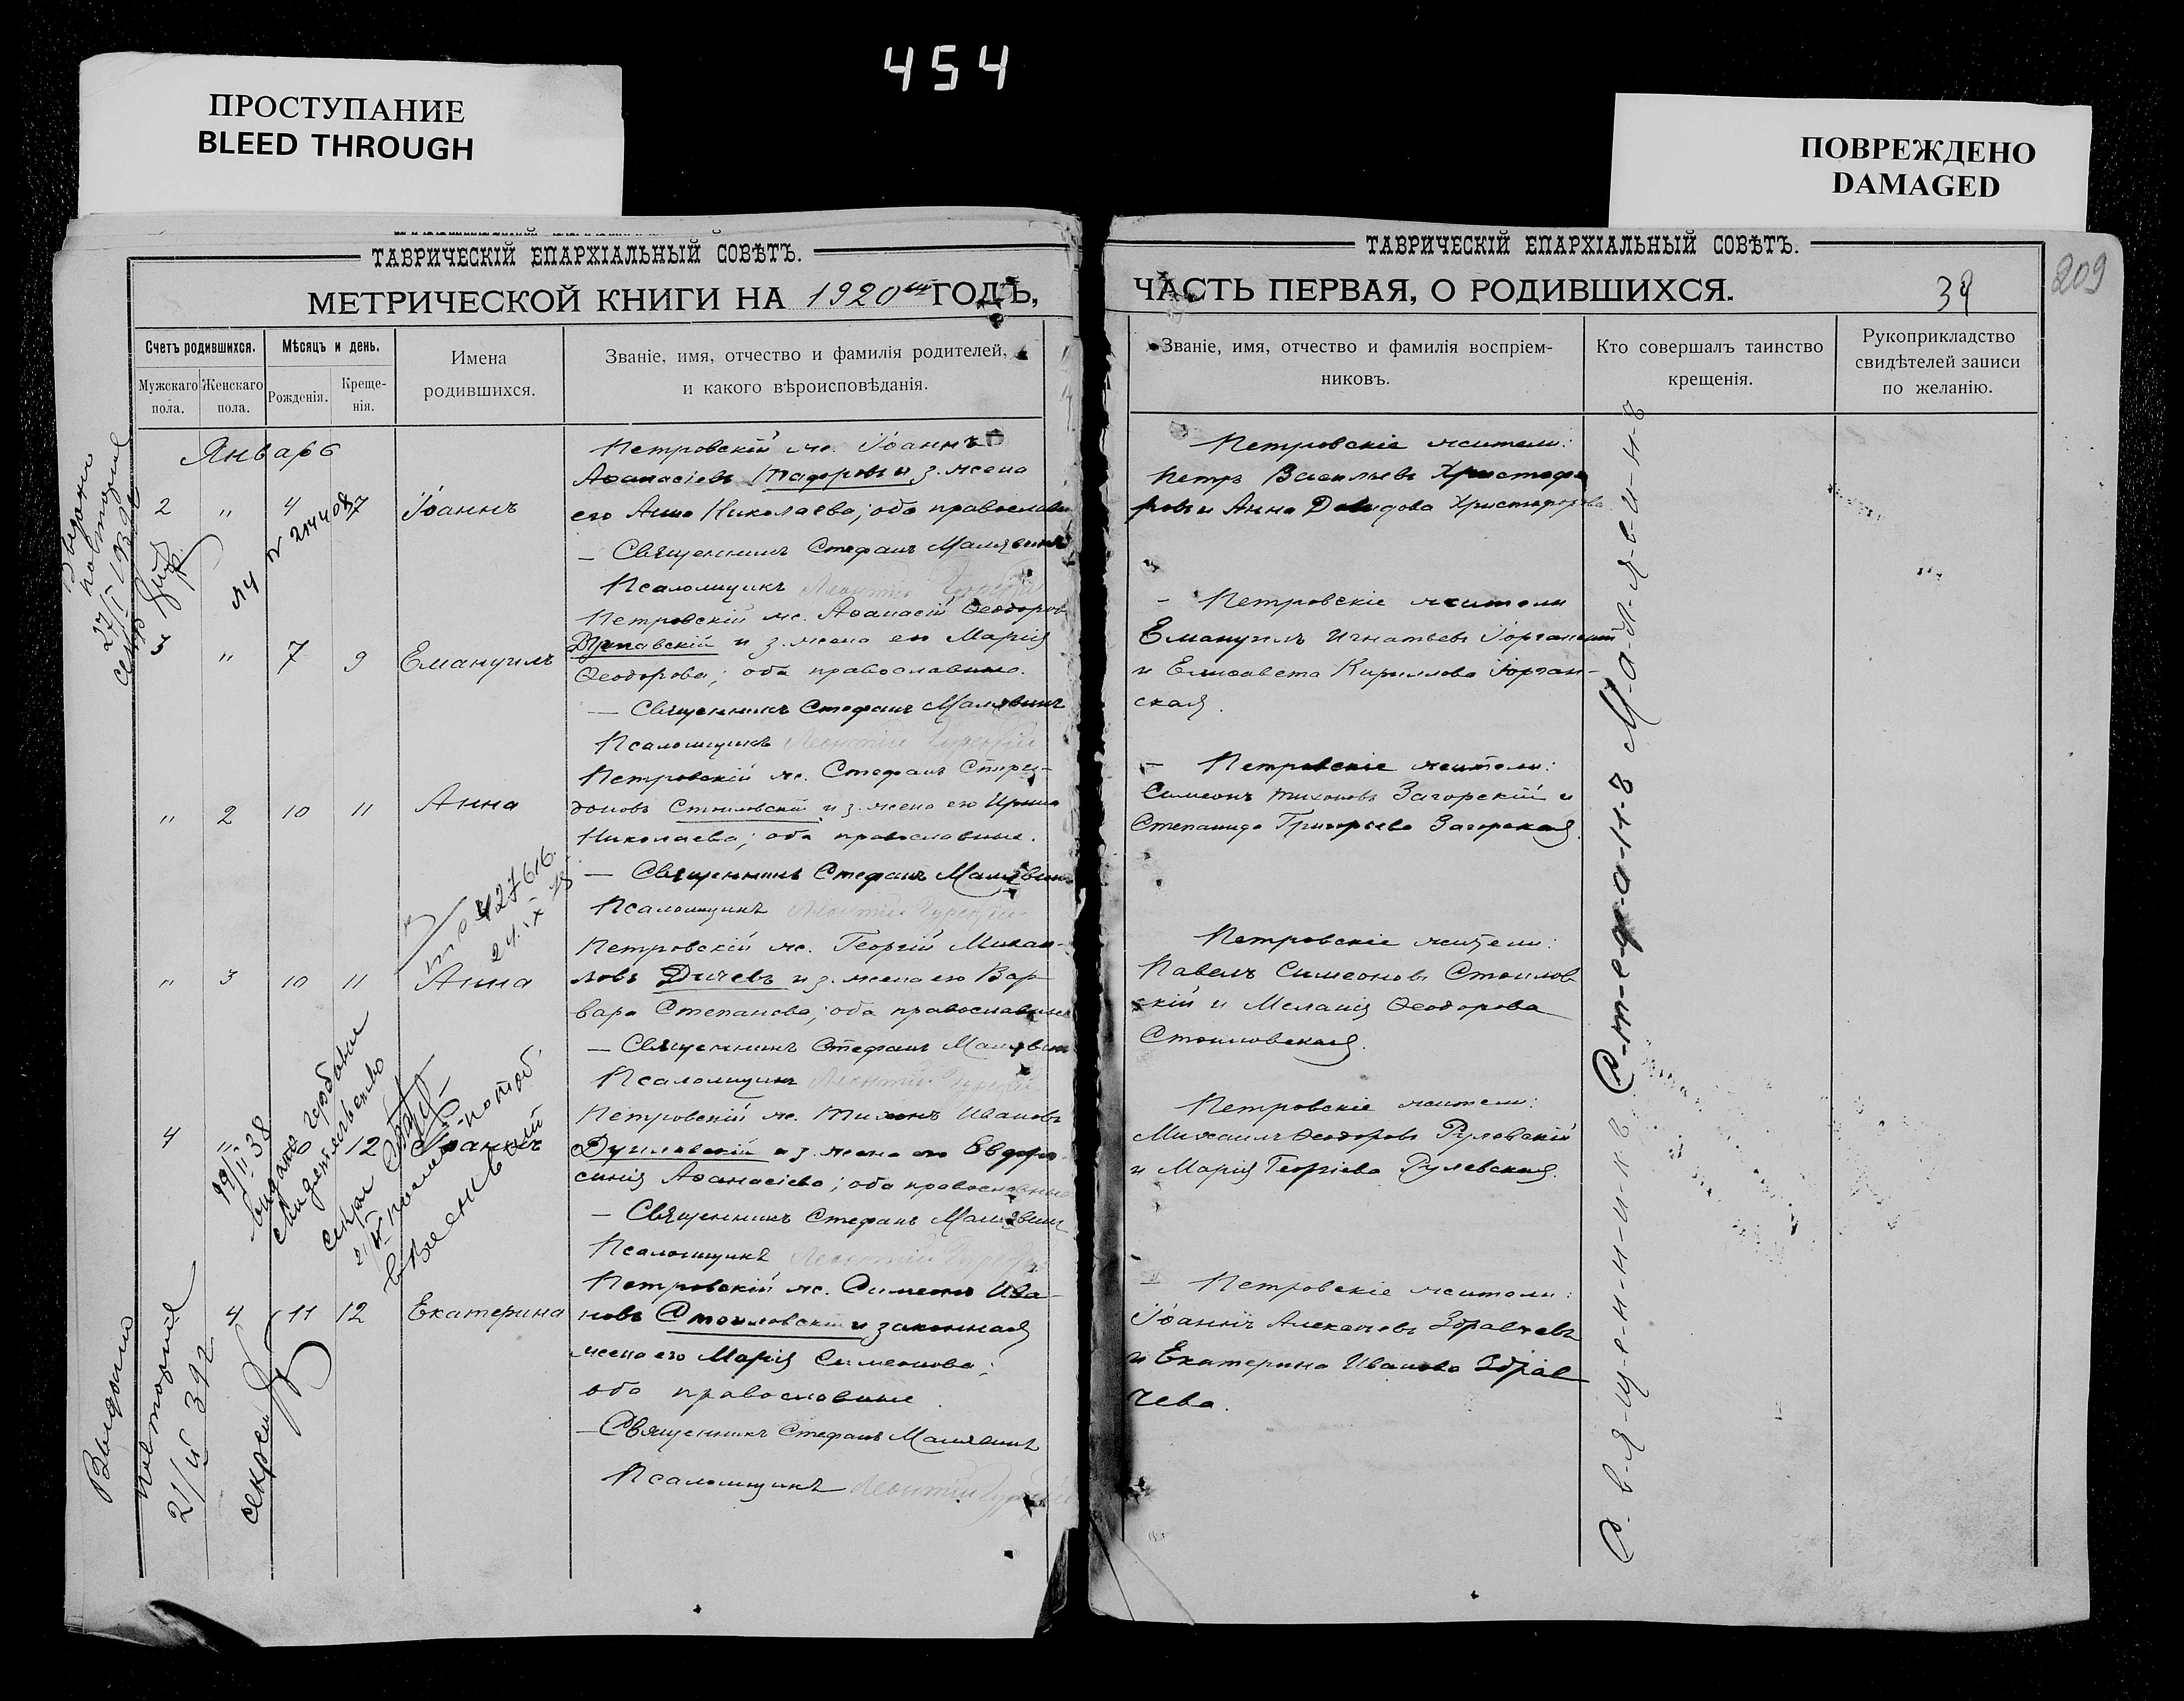 454
ПРОСТУПАНИЕ
BLEED THROUGH
ПОВРЕЖДЕНО
DAMAGED
ТАВРИЧЕСКІЙ ЕПАРХІАЛЬНЫЙ СОВѢТЪ.
МЕТРИЧЕСКОЙ КНИГИ НА 1920 ГОДЪ,
Счетъ родившихся.
Мужскаго пола.
Женскаго пола.
Мѣсяцъ и день.
Рожденія.
Креще-
нія.
Имена
родившихся.
Званіе, имя, отчество и фамилія родителей,
и какого вѣроисповѣданія.
Январь
2 " 4 7 Іоаннъ
Петровскій ж. Іоаннъ
Аѳанасіевъ и з. жена
его Анна Николаева; оба православные
— Священникъ Стефанъ Малявинъ
Псаломщикъ Леонтій
3 " 7 9 Емануилъ
Петровскій ж. Аѳанасій Ѳеодоровъ
и з. жена его Марія
Ѳеодорова; оба православные.
— Священникъ Стефанъ Малявинъ
Псаломщикъ Леонтій
" 2 10 11 Анна
Петровскій ж. Стефанъ
Стоиловскій и з. жена его Ирина
Николаева; оба православные.
— Священникъ Стефанъ Малявинъ
Псаломщикъ Леонтій
" 3 10 11 Анна
Петровскій ж. Георгій Михаи-
ловъ Дичевъ и з. жена его Вар-
вара Степанова; оба православные
— Священникъ Стефанъ Малявинъ
Псаломщикъ Леонтій
4 " 12 Іоаннъ
Петровскій ж. Тихонъ Ивановъ
и з. жена его Евфро-
синія Аѳанасіева; оба православные
— Священникъ Стефанъ Малявинъ
Псаломщикъ Леонтій
4 11 12 Екатерина
Петровскій ж. Симеонъ Ива-
новъ Стоиловскій и законная
жена его Марія Симеонова;
оба православные.
— Священникъ Стефанъ Малявинъ
Псаломщикъ Леонтій
Выдано
повторно
27/I-1939
№ 244087
427616
24.IX
19/II 38
выдано гербовое
свидетельство
Выдано
повторно
21/
секрет
ТАВРИЧЕСКІЙ ЕПАРХІАЛЬНЫЙ СОВѢТЪ.
ЧАСТЬ ПЕРВАЯ, О РОДИВШИХСЯ.
209
Званіе, имя, отчество и фамилія воспріем-
никовъ.
Кто совершалъ таинство
крещенія.
Рукоприкладство
свидѣтелей записи
по желанію.
Петровскіе жители:
Петръ Васильевъ Христофо
ровъ и Анна Давидова Христофорова
— Петровскіе жители
Емануилъ Игнатьевъ Іорганскій
и Елисавета Кириллова Іорган-
ская.
— Петровскіе жители:
Симеонъ Тихоновъ Загорскій и
Степанида Григорьева Загорская.
Петровскіе жители:
Павелъ Симеоновъ Стоилов
скій и Меланія Ѳеодорова
Стоиловская.
Петровскіе жители:
Михаилъ Ѳеодоровъ Рулевскій
и Марія Георгіева Рулевская.
— Петровскіе жители:
Іоаннъ Алексѣевъ Здравчевъ
и Екатерина Иванова Здрав
чева.
С-в-я-щ-е-н-н-и-к-ъ С-т-е-ф-а-н-ъ М-а-л-я-в-и-н-ъ